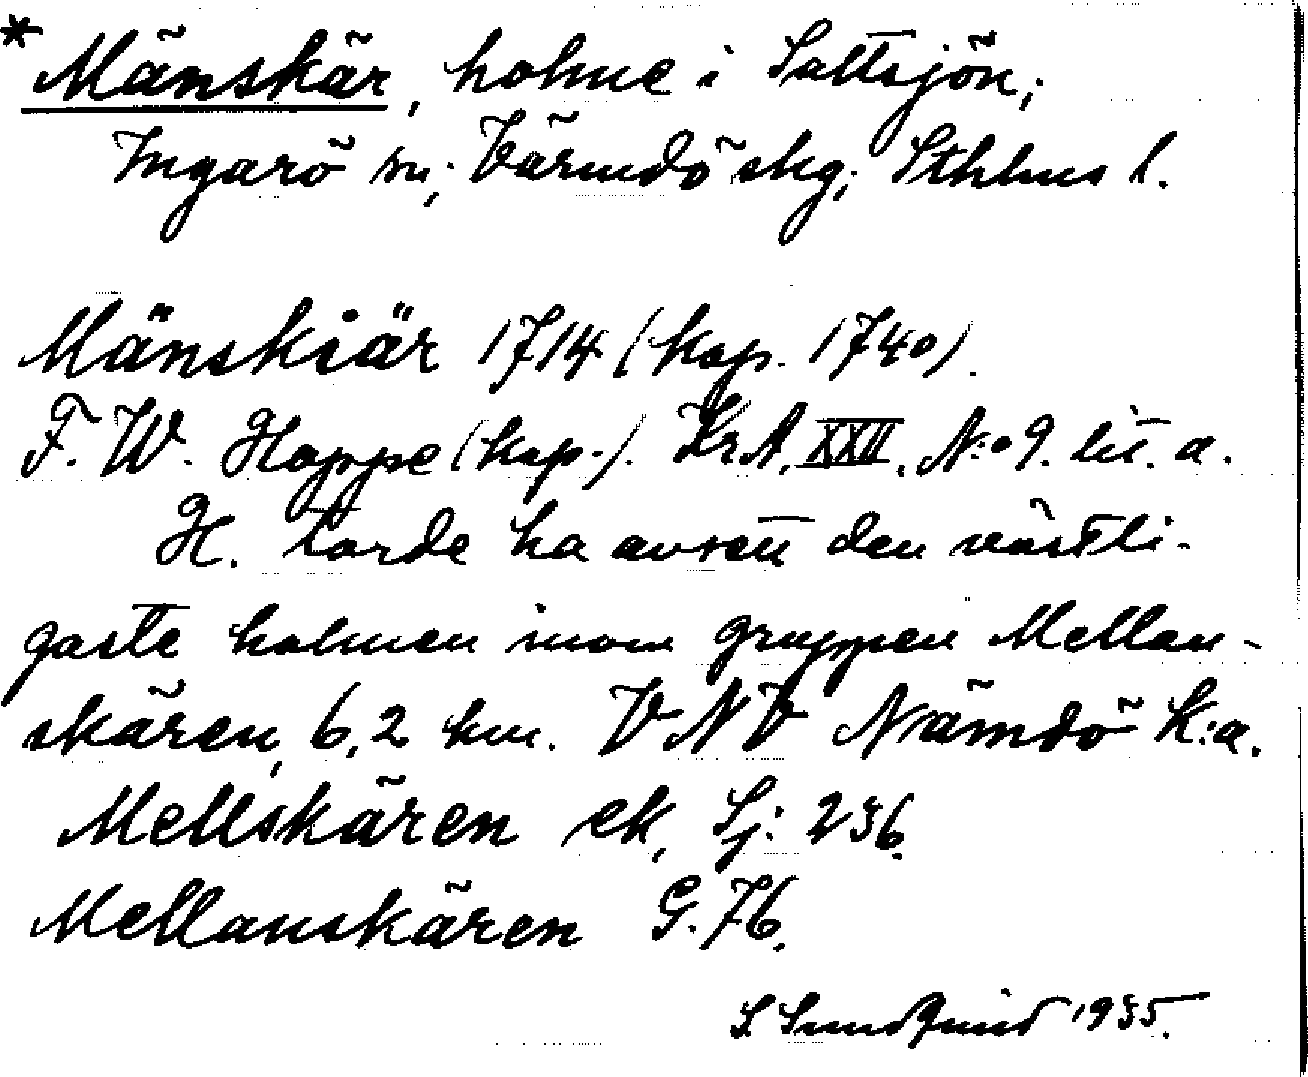 * Mänskär, holme i Saltsjön;
Ingarö sn; Värmdö skg; Sthlms l.
Mänskiär 1714 (kop. 1740).
F. W. Hoppe (kop.). Kr.A. XXII. N:o 9. lit. a.
H. torde ha avsett den västli-
gaste holmen inom gruppen Mellan-
skären, 6,2 km. VNV Nämdö K:a.
Mellskären ek, Sj: 236.
Mellanskären G. 76.
S Sundquist 1935.